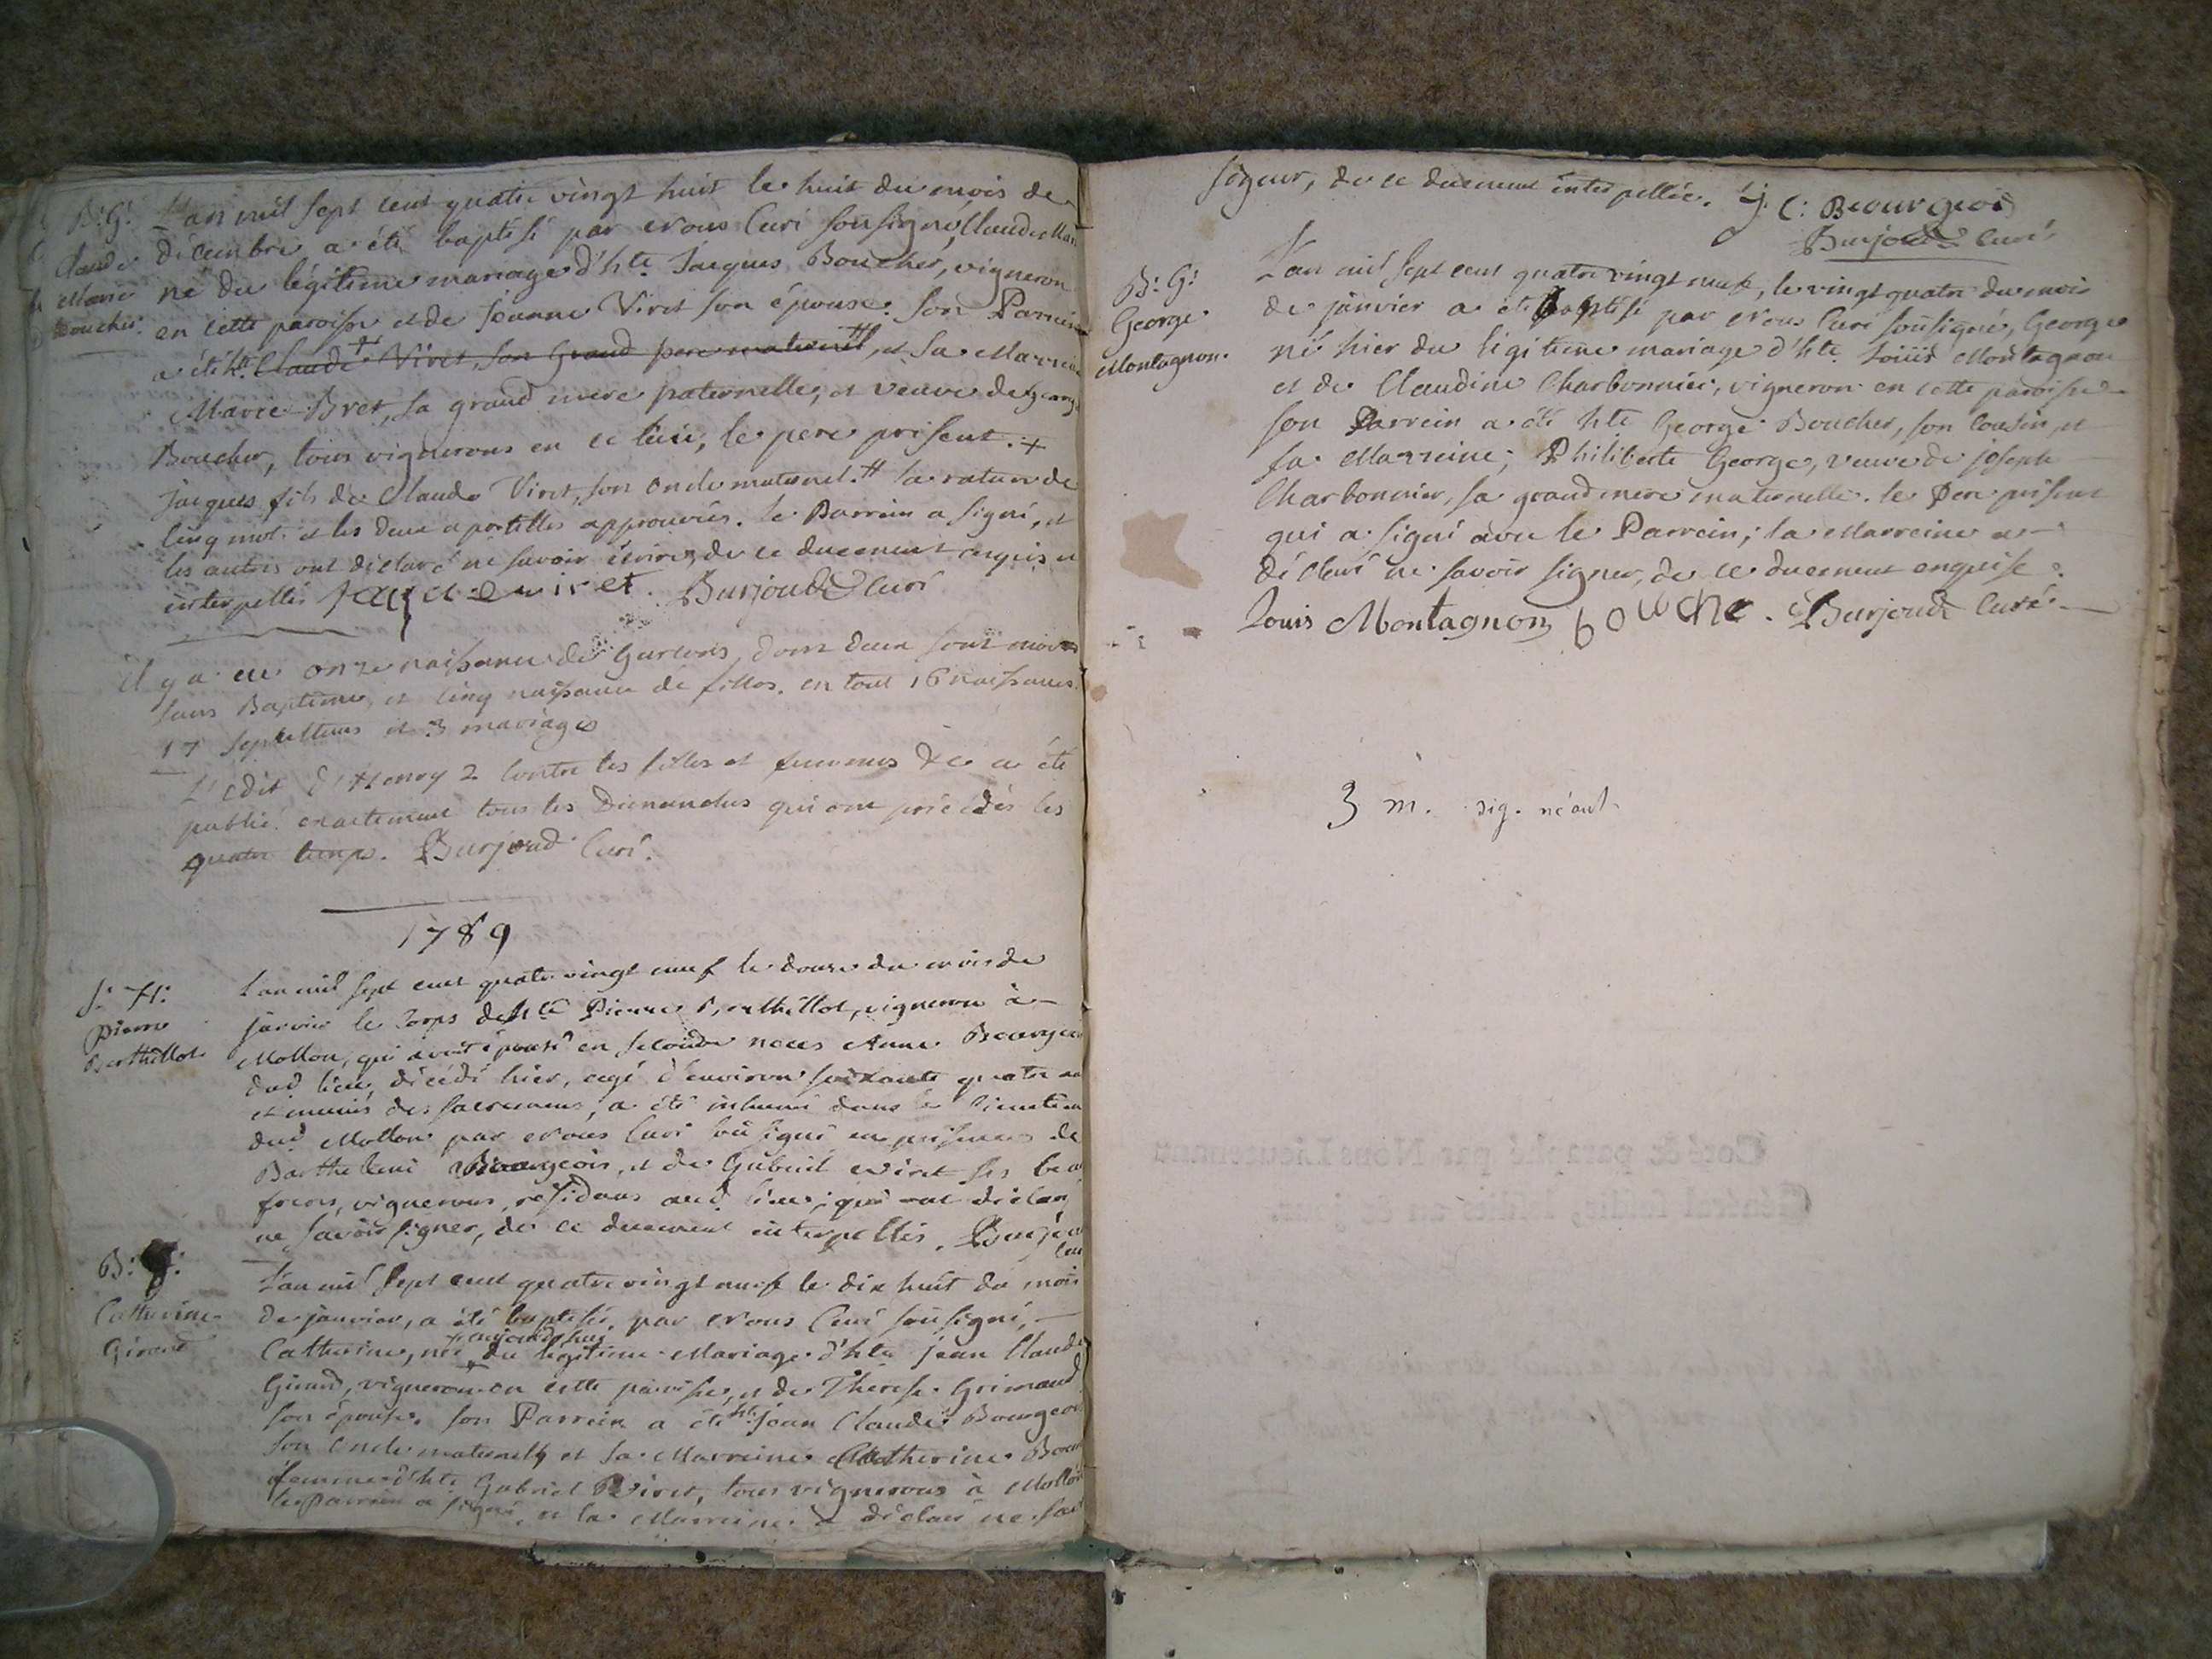 B: G:
Claude
Marie
Boucher.
L'an mil sept cent quatre vingt huit le huit du mois de
décembre a été baptisé par Nous Curé soussigné, Claude Marie
né du légitime mariage d'hte Jacques Boucher, vigneron
en cette paroisse et de Jeanne Viret son épouse. Son Parrein
a été hte Claude Viret, son Grand pere maternel, et sa Marreine
Marie Bret, sa grand mere paternelle, et veuve de George
Boucher, tous vignerons en ce lieu, le pere présent. +
Jacques fils de Claude Viret, son oncle maternel. # la rature de
cinq mots et les deux apostilles approuvées. le Parrein a signé, et
les autres ont déclaré ne savoir écrire, de ce duement requis et
interpellés Jaque viret. Burjoud Curé
il y a eu onze naissances de Garcons, dont deux sont morts
sans Baptême, et cinq naissances de filles. en tout 16 naissances.
17 sepultures et 3 mariages
L'edit d'Henry 2 contre les filles et femmes &c a été
publié exactement tous les Dimanches qui ont précédés les
quatre temps. Burjoud Curé.
1789
S: H:
Pierre
Berthillot
L'an mil sept cent quatre vingt neuf le douze du mois de
janvier le Corps de hte Pierre Berthillot, vigneron à
Mollon, qui avoit épousé en seconde noces Anne Bourgeois
dud lieu, décédé hier, agé d'environ soixante quatre ans
et munis des sacremens, a été inhumé dans le Cimetiere
dud Mollon par Nous Curé soussigné en présence de
Barthelemi Bourgeois, et de Gabriel Viret ses beau
freres, vignerons, résidans aud lieu, qui ont déclaré
ne savoir signer, de ce duement interpellés. Burjoud
Curé
B: F:
Catherine
Girand
L'an mil sept cent quatre vingt neuf le dix huit du mois
de janvier, a été baptisée par Nous Curé soussigné,
Catherine, née aujourd'hui du légitime Mariage d'hte jean Claude
Girand, vigneron en cette paroisse, et de Therese Grimaud
son épouse. son Parrein a été hte jean Claude Bourgeois
son oncle maternel, et sa Marreine Catherine
femme d'hte Gabriel Viret, tous vignerons à Mollon
le Parrein a signé, et la Marreine a déclaré ne savoir
signer, de ce duement interpellée. J. C: Beourgois
Burjoud Curé
B: G:
George
Montagnon.
L'an mil sept cent quatre vingt neuf, le vingt quatre du mois
de janvier a été baptisé par Nous Curé soussigné, George
né hier du légitime mariage d'hte Loüis Montagnon
et de Claudine Charbonnier, vigneron en cette paroisse
son Parrein a été hte George Boucher, son Cousin, et
sa Marreine, Philiberte George, veuve de joseph
Charbonnier, sa grand mere maternelle. le Pere présent
qui a signé avec le Parrein; la Marreine a
déclaré ne savoir signer, de ce duement enquise.
Louis Montagnon bouche. Burjoud Curé
3 m. sig. néant